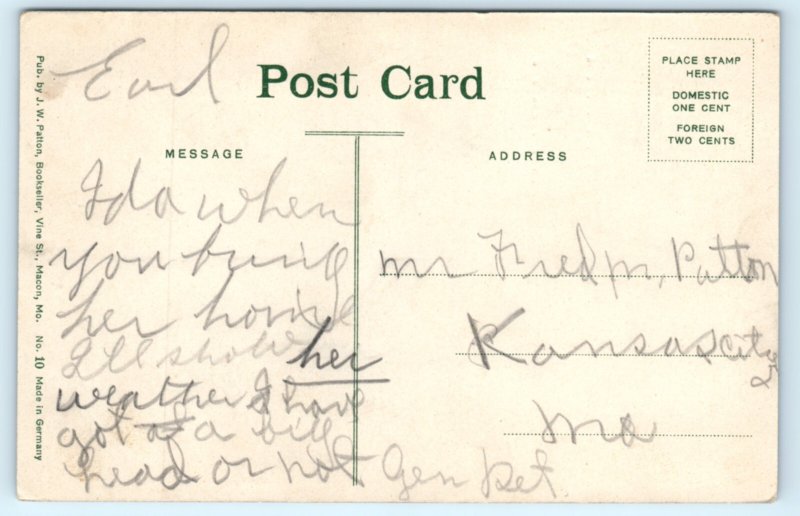 Post Card
PLACE STAMP
HERE
DOMESTIC
ONE CENT
FOREIGN
TWO CENTS
MESSAGE
ADDRESS
Pub. by J. W. Patton, Bookseller, Vine St., Macon, Mo. No. 10 Made in Germany
Earl
Ida when
you bring
her home
I'll show her
weather I have
got a big
head or not
mr Fred m, Patton
Kansas city
mo